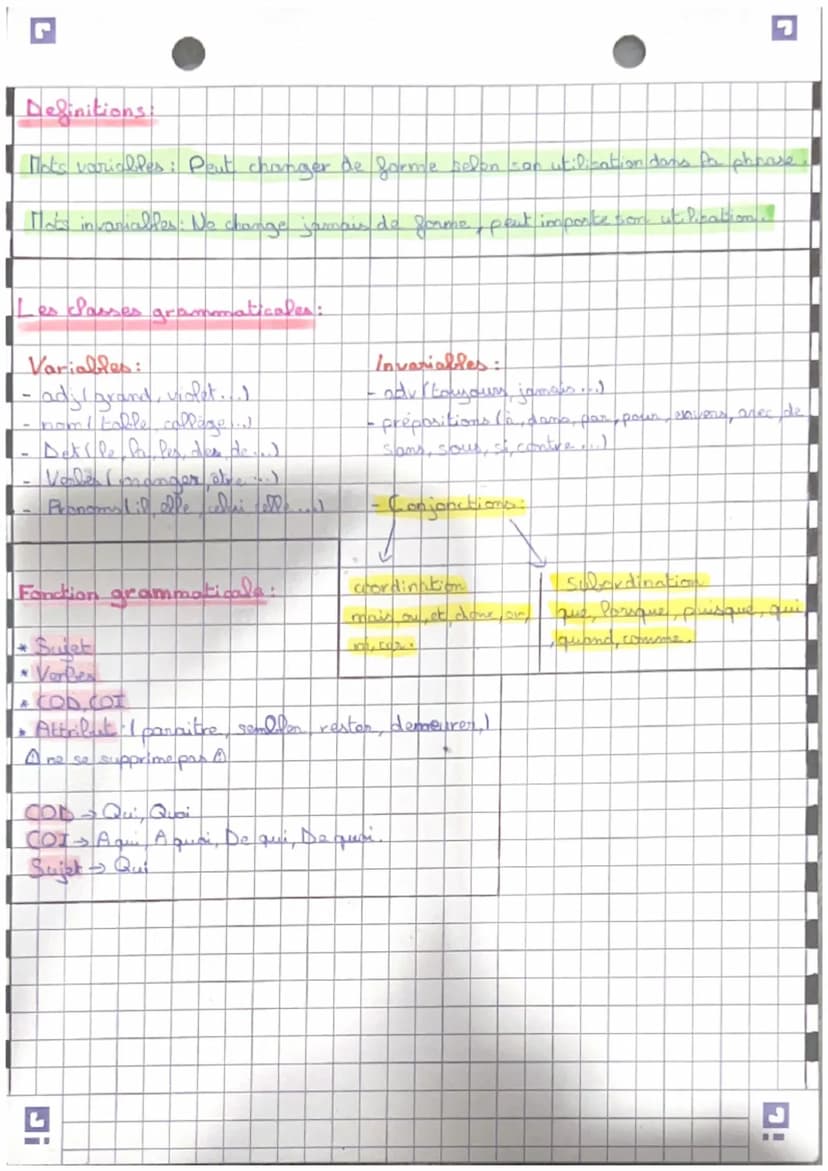 Definitions:
Mots variables : Peut changer de forme selon son utilisation dans la phrase.
Mots invariables : Ne change jamais de forme, peut importe son utilisation.
Les classes grammaticales :
Variables :
- adj (grand, violet...)
- nom (table, collège...)
- Det (le, la, les, des, de...)
- Verbes (manger, etre ...)
- Pronoms (il, elle, celui, celle ...)
Invariables :
- adv (toujours, jamais...)
- prépositions (à, dans, par, pour, envers, avec, de
sans, sous, si, contre ...)
- Conjonctions:
coordination
mais, ou, et, donc, or,
ni, car.
Subordination
que, lorsque, puisque, qui
, quand, comme.
Fonction grammaticale :
* Sujet
* Verbes
* COD, COI
* Attribut : (paraitre, sembler, rester, demeurer,)
⚠ ne se supprime pas ⚠
COD → Qui, Quoi
COI → A qui, A quoi, De qui, De quoi.
Sujet → Qui